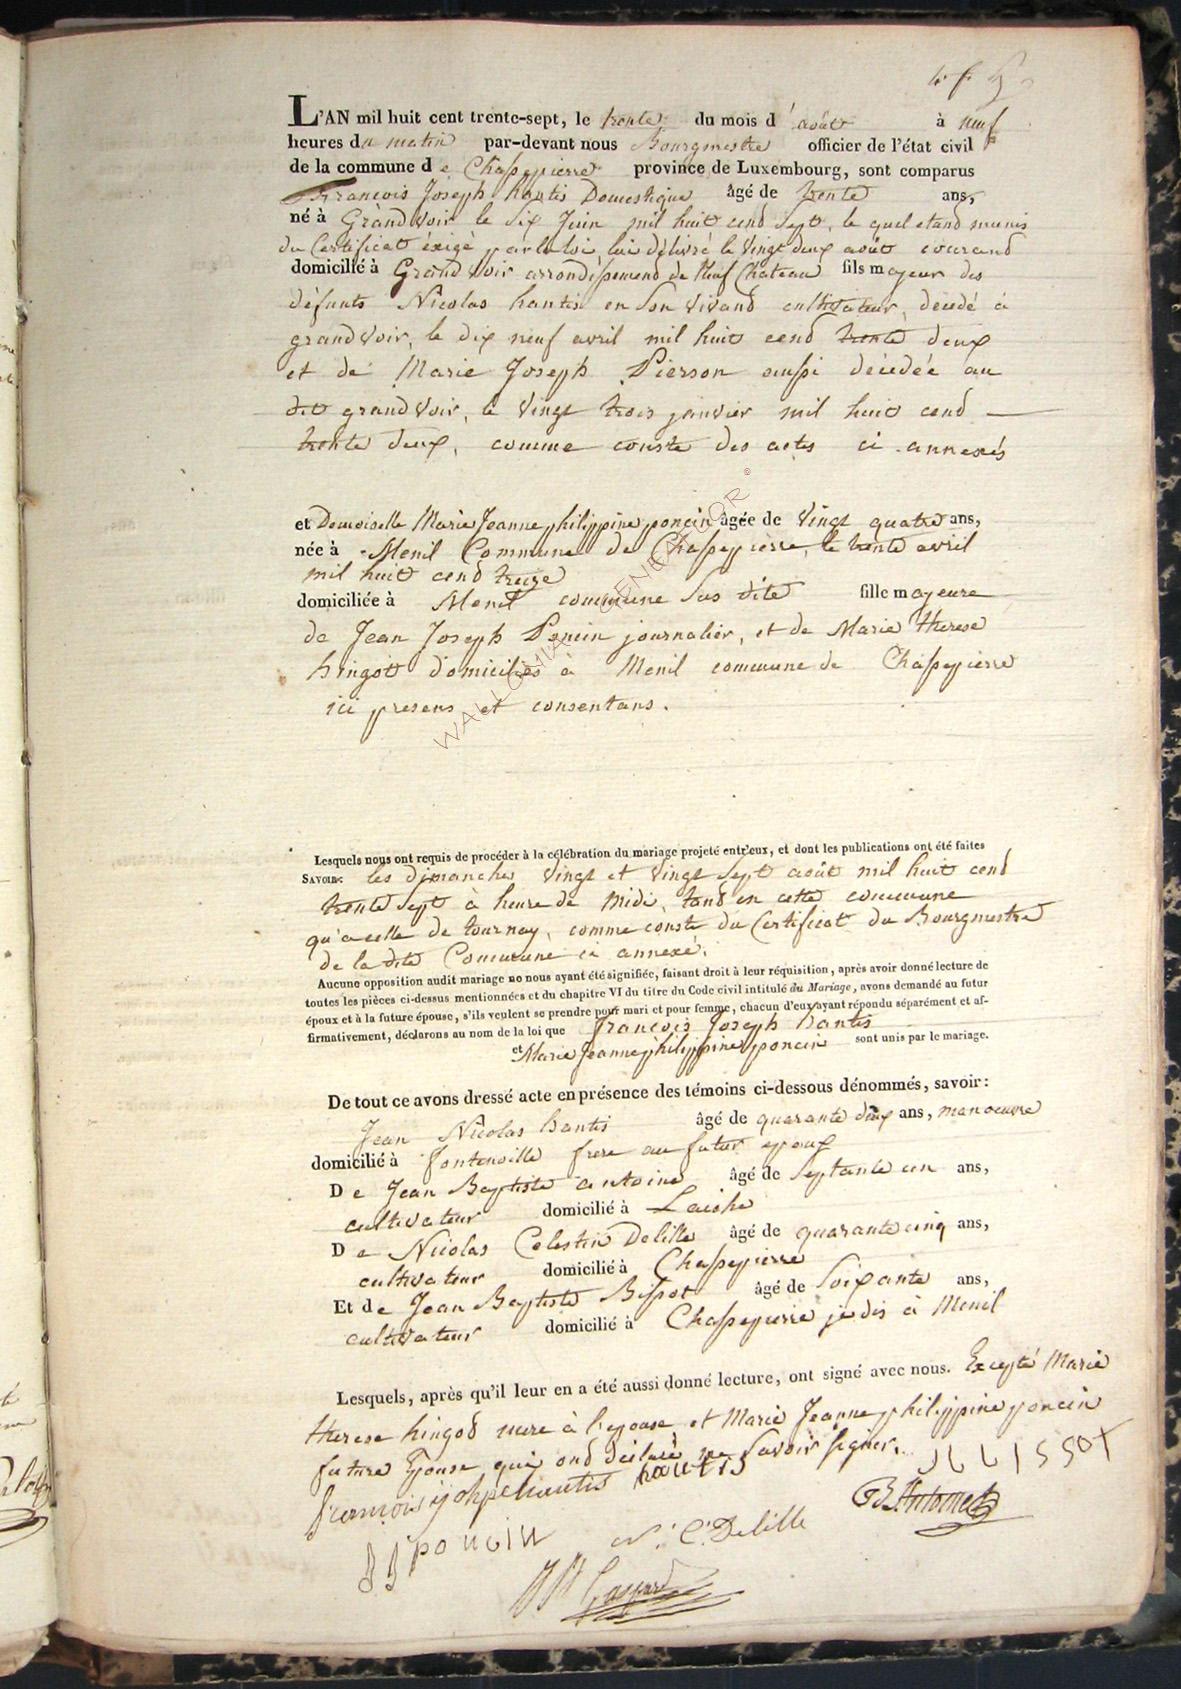 L'AN mil huit cent trente-sept, le trente du mois d'août à neuf
heures du matin par-devant nous Bourgmestre officier de l'état civil
de la commune de Chassepierre province de Luxembourg, sont comparus
Francois Joseph hantis Domestique âgé de trente ans,
né à Grandvoir le Six Juin mil huit cend sept, le quel etand munis
du Certificat éxigé par la loi, lui délivré le vingt deux août courand
domicilié à Grandvoir arrondissemend de Neufchateau fils majeur des
défunts Nicolas hantis en Son vivand cultivateur, décédé à
grandvoir, le dix neuf avril mil huit cend trente deux
et de Marie Joseph Pierson aussi décédée au
dit grandvoir, le vingt trois janvier mil huit cend
trente deux, comme conste des actes ci annexés
et Demoiselle Marie Jeanne philippine poncin âgée de vingt quatre ans,
née à Menil Commune de Chassepierre, le trente avril
mil huit cend treize
domiciliée à Menil commune Sus dite fille majeure
de Jean Joseph Poncin journalier, et de Marie therese
hingot domiciliés à Menil commune de Chassepierre
ici presens et consentans.
WALLONIA GENEALOR ©
Lesquels nous ont requis de procéder à la célébration du mariage projeté entr'eux, et dont les publications ont été faites
SAVOIR: les dimanches vingt et vingt Sept août mil huit cend
trente Sept à heure de midi, tand en cette commune
qu'a celle de tournay, comme conste du Certificat du Bourgmestre
de la dite Commune ci annexé.
Aucune opposition audit mariage ne nous ayant été signifiée, faisant droit à leur réquisition, après avoir donné lecture de
toutes les pièces ci-dessus mentionnées et du chapitre VI du titre du Code civil intitulé du Mariage, avons demandé au futur
époux et à la future épouse, s'ils veulent se prendre pour mari et pour femme, chacun d'eux ayant répondu séparément et af-
firmativement, déclarons au nom de la loi que francois Joseph hantis
et Marie Jeanne philippine poncin sont unis par le mariage.
De tout ce avons dressé acte en présence des témoins ci-dessous dénommés, savoir:
Jean Nicolas hantis âgé de quarante deux ans, manoeuvre
domicilié à fontenoille frere au futur epoux
De Jean Baptiste antoine âgé de Septante un ans,
cultivateur domicilié à Laiche
De Nicolas Celestin Delille âgé de quarante cinq ans,
cultivateur domicilié à Chassepierre
Et de Jean Baptiste Bissot âgé de Soixante ans,
cultivateur domicilié à Chassepierre je dis à Menil
Lesquels, après qu'il leur en a été aussi donné lecture, ont signé avec nous. Excepté Marie
therese hingod mere à l'epouse et Marie Jeanne philippine poncin
future Epouse qui ond déclaré ne Savoir Signer.
hantis
JB Antoine
JJ poncin N. C. Delille
Gaspard